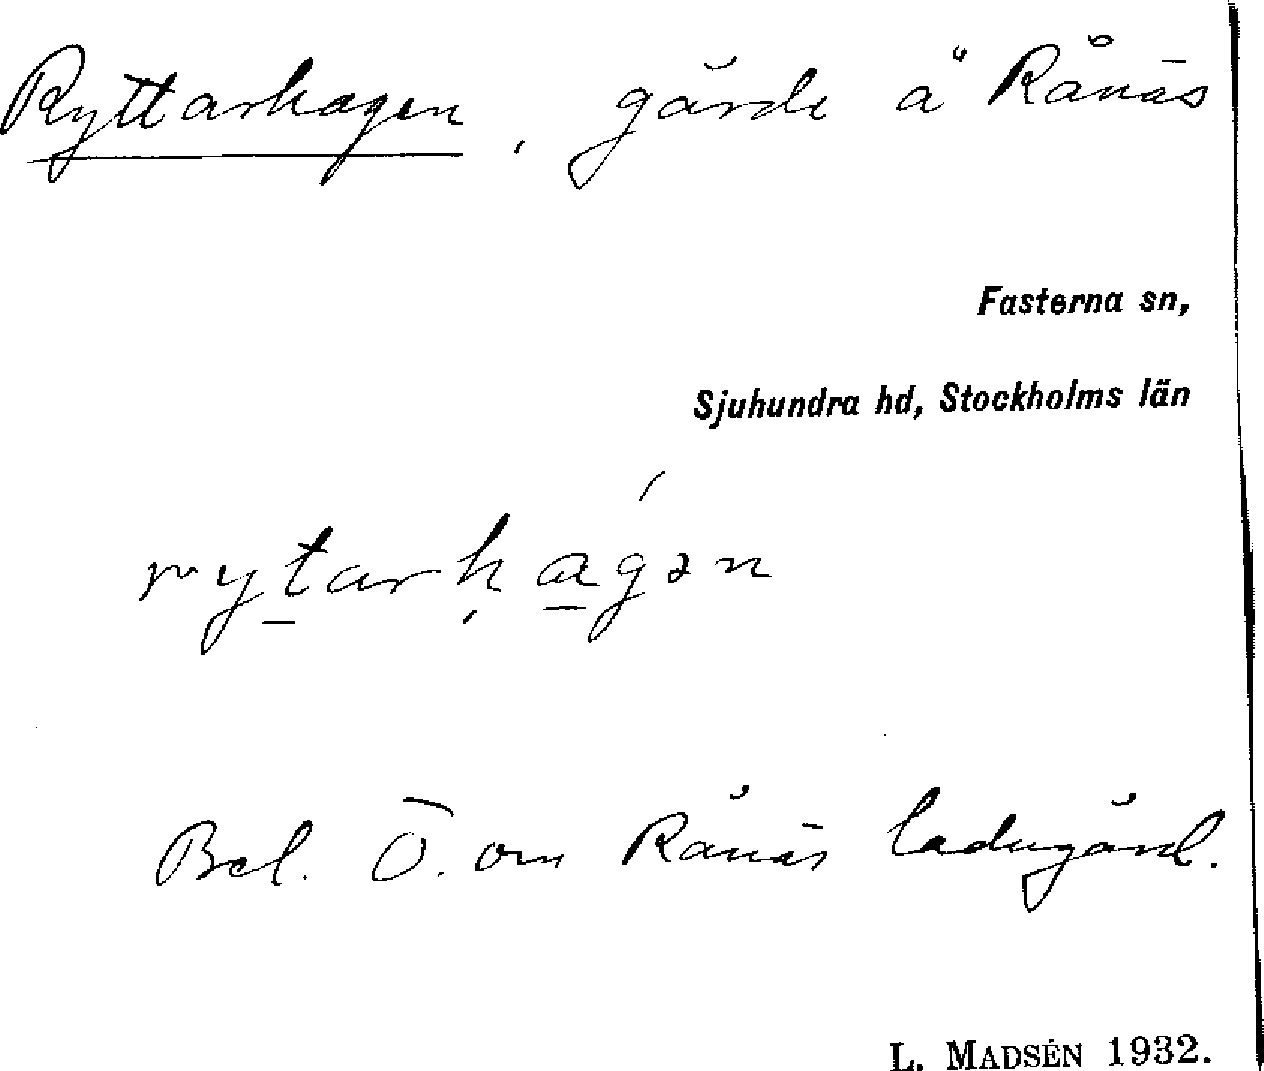 Ryttarhagen, gärde å Rånäs
Fasterna sn,
Sjuhundra hd, Stockholms län
rytarḥa̱gən
Bel. Ö. om Rånäs ladugård.
L. MADSÉN 1932.